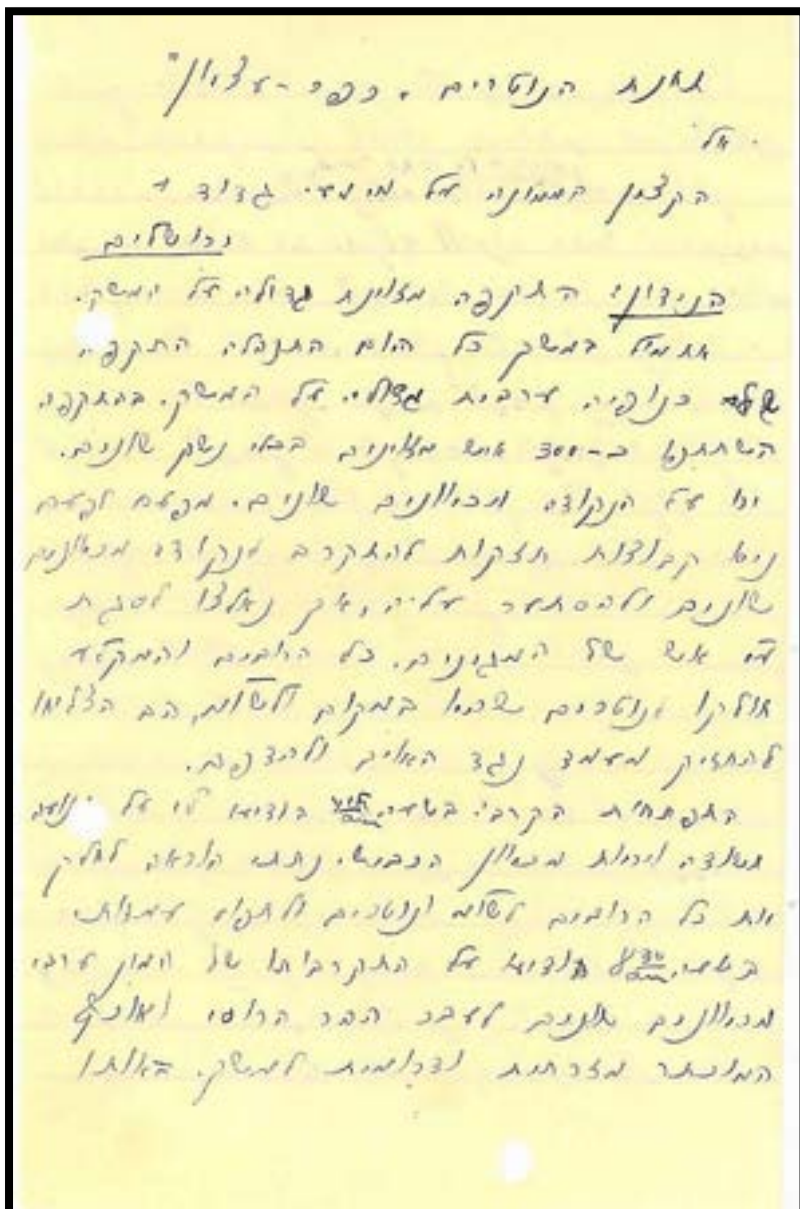 תחנת הנוטרים "כפר-עציון"
אל
הקצין הממונה על גדוד
ירושלים
הנידון: התקפה מזוינת גדולה על המשק.
אתמול במשך כל היום התנהלה התקפה
של כנופיה ערבית גדולה על המשק. בהתקפה
השתתפו כ-300 איש מזוינים בכלי נשק שונים.
ירו על הנקודה מכוונים שונים. מפעם לפעם
ניסו קבוצות חזקות להתקרב לנקודה מכוונים
שונים ולהסתער עליה, אך נאלצו לסגת
מפני אש של המגינים. כל הרובים והמקלע
חולקו לנוטרים שהיו במקום ולשומ, הם הצליחו
להחזיק מעמד נגד האויב ולהדפם.
התפתחות הקרב: בשעה הודיעו לי על תנועה
חשודה ויריות מכוון הכביש. נתתי הוראה לחלק
את כל הרובים לשומ ונוטרים ולתפוס עמדות.
בשעה הודיעו על התקרבותו של המון ערבי
מכוונים שונים לעבר ההר הרוסי ואוכף
המוכתר מזרחית ודרומית למשק. באותו